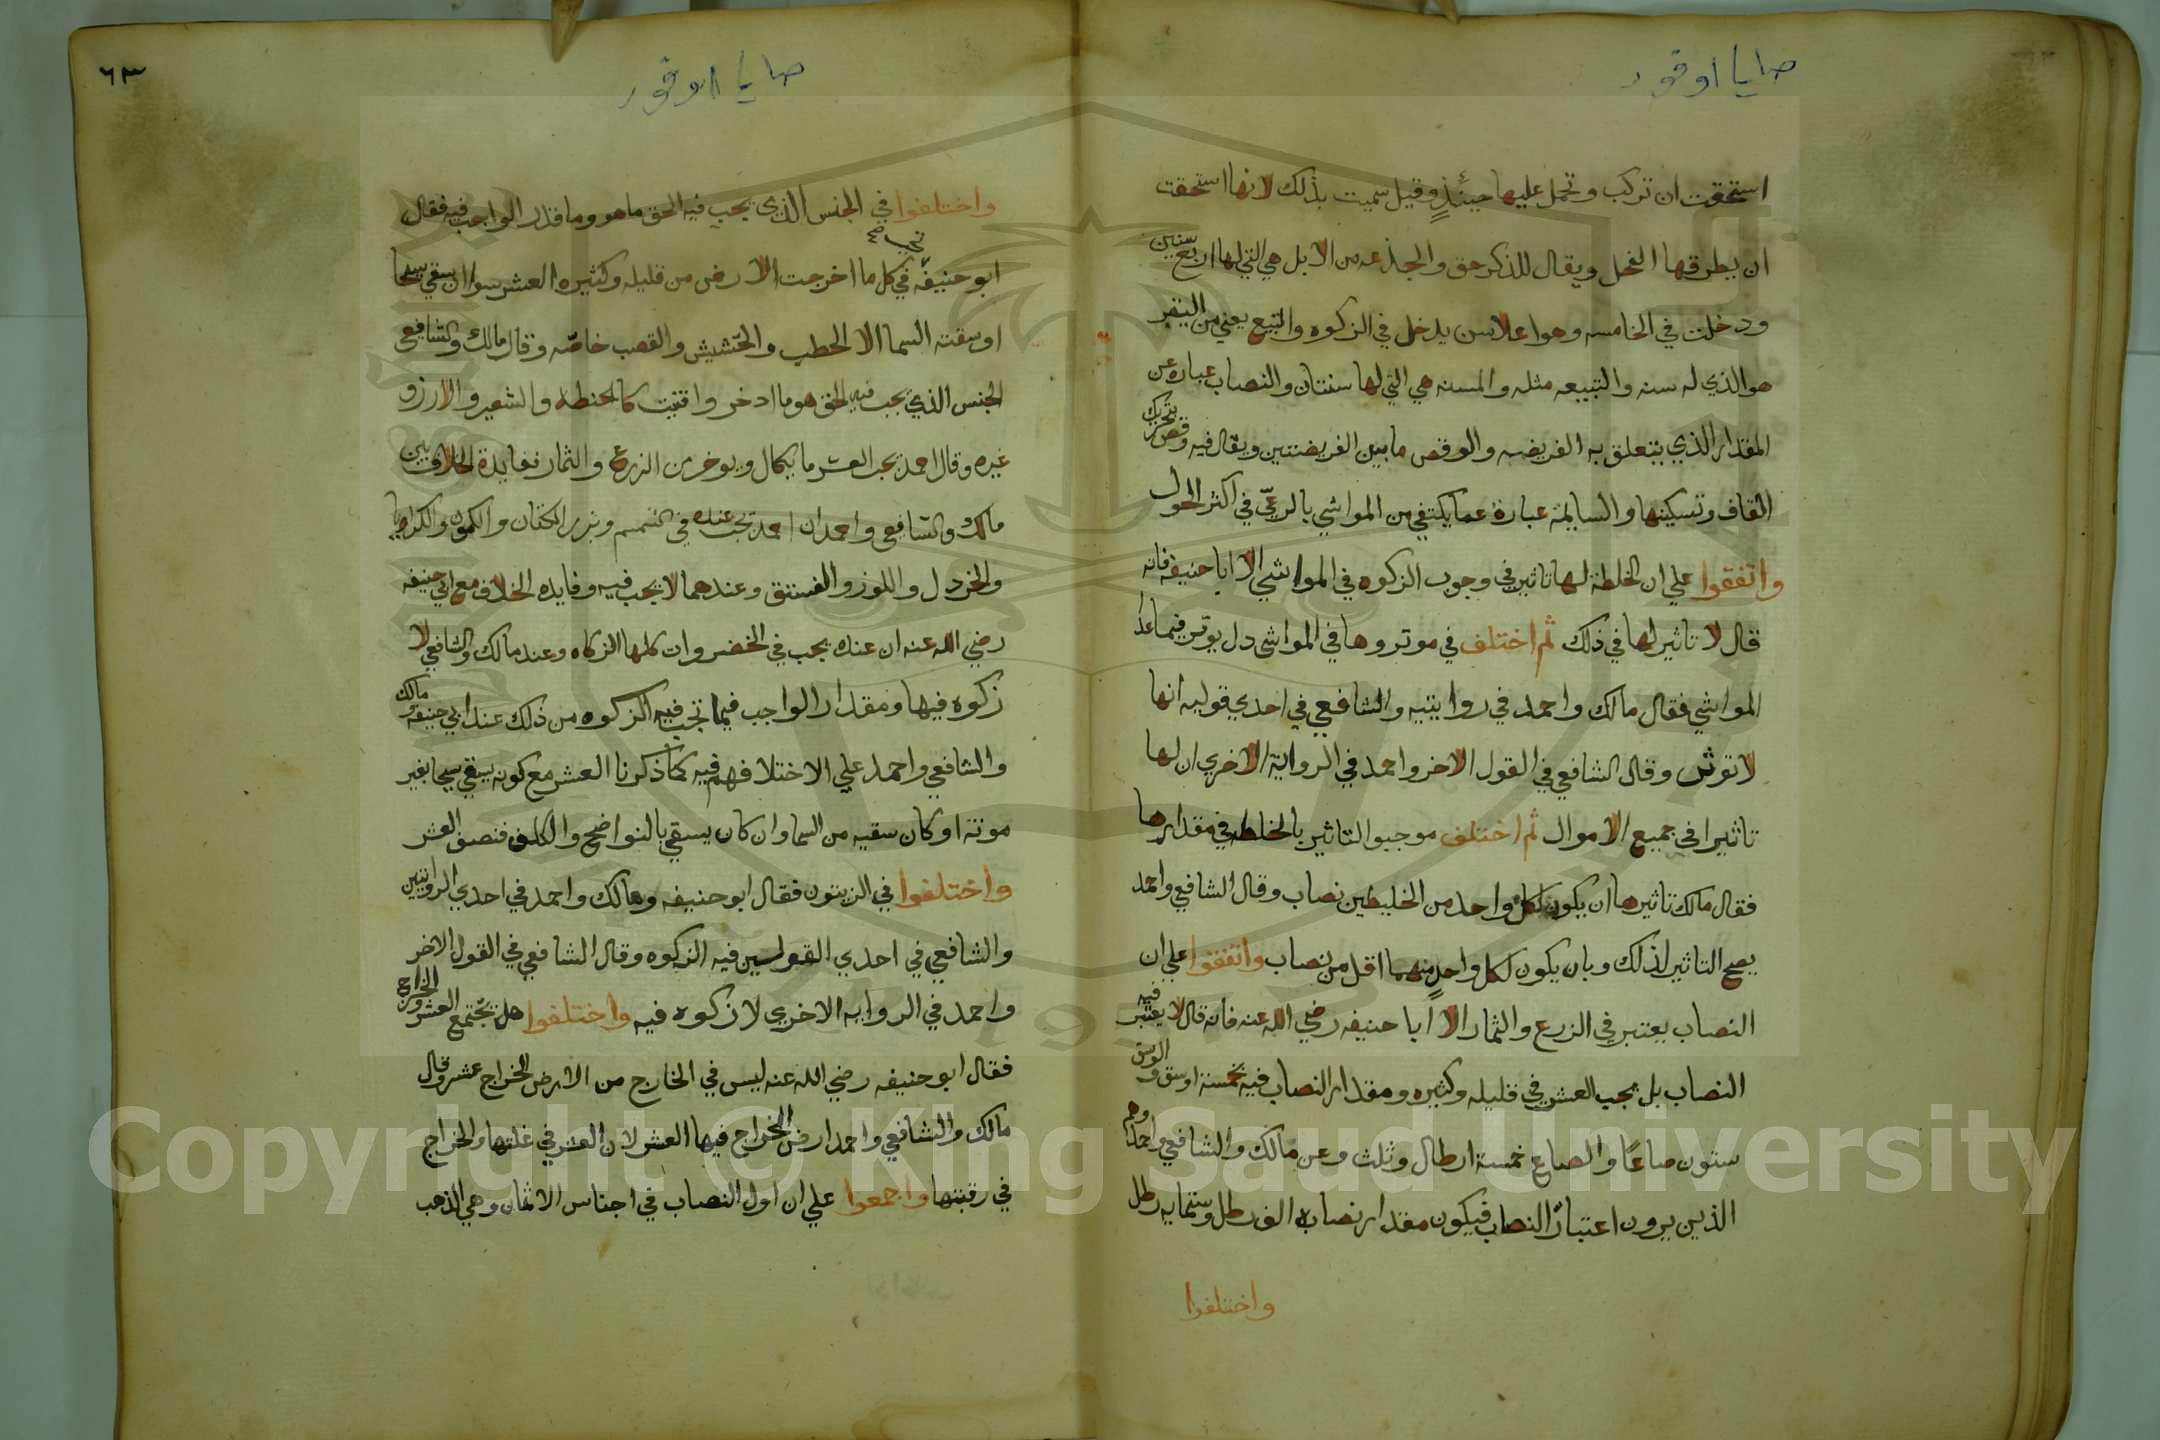 صايا اوقور
استحقت ان تركب وتحمل عليها حينئذٍ وقيل سميت بذلك لانها استحقت
ان يطرقها الفحل ويقال للذكر حق والجذعه من الابل هي التي لها اربع سنين
ودخلت في الخامسه وهو اعلا سن يدخل في الزكوه والتبيع يعني من البقر
هو الذي له سنه والتبيعه مثله والمسنه هي التي لها سنتان والنصاب عباره عن
المقدار الذي يتعلق به الفريضه والوقص ما بين الفريضتين ويقال فيه وقص بتحريك
القاف وتسكينها والسايمة عبارة عما يكتفي من المواشي بالرعي في اكثر الحول
واتفقوا علي ان الخلطة لها تاثير في وجوب الزكوه في المواشي الا ابا حنيفه فانه
قال لا تاثير لها في ذلك ثم اختلف في موثروها في المواشي دل يوثر فيما عدا
المواشي فقال مالك واحمد في روايتيه والشافعي في احدي قوليه انها
لا توثر وقال الشافعي في القول الاخر واحمد في الرواية الاخري ان لها
تاثيرا في جميع الاموال ثم اختلف موجبوا التاثير بالخلطه في مقدارها
فقال مالك تاثيرها ان يكون لكل واحد من الخليطين نصاب وقال الشافعي واحمد
يصح التاثير لذلك وبان يكون لكل واحدٍ منهما اقل من نصاب واتفقوا علي ان
النصاب يعتبر في الزرع والثمار الا ابا حنيفه رضي الله عنه فانه قال لا يعتبر فيه
النصاب بل يجب العشر في قليله وكثيره ومقدار النصاب فيه خمسة اوسق والوسق
ستون صاعًا والصاع خمسة ارطال وثلث وعن مالك والشافعي واحمد وهم
الذين يرون اعتبار النصاب فيكون مقدار نصابه الف رطل وستمايه رطل
واختلفوا
٦٣
صايا اوقور
واختلفوا في الجنس الذي يجب فيه الحق ما هو وما قدر الواجب فيه فقال
ابو حنيفه في كل ما اخرجت الارض من قليله وكثيره العشر سوا ان سقي سيحا
او سقته السما الا الحطب والحشيش والقصب خاصّه وقال مالك والشافعي
الجنس الذي يجب فيه الحق هو ما ادخر واقتيت كالحنطه والشعير والارز و
غيره وقال احمد يجب العشر ما يكال ويوخر من الزرع والثمار نفايدة الخلاف بين
مالك والشافعي واحمد ان احمد تجب عنده في السمسم وبزر الكتان والكمون والكراويا
والخردل واللوز والفستق وعندهما لا يجب فيه وفايده الخلاف مع ابي حنيفه
رضي الله عنه ان عنده يجب في الخضروات كلها الزكاه وعند مالك والشافعي لا
زكوه فيها ومقدار الواجب فيما تجب فيه الزكوه من ذلك عند ابي حنيفه ومالك
والشافعي واحمد علي الاختلافهم فيه كما ذكرنا العشر مع كونه يسقي سيحا بغير
مونة او كان سقيه من السما وان كان يسقي بالنواضح والكلف فنصف العشر
واختلفوا في الزيتون فقال ابو حنيفه ومالك واحمد في احدي الروايتين
والشافعي في احدي القولين فيه الزكوه وقال الشافعي في القول الاخر
واحمد في الروايه الاخري لا زكوه فيه واختلفوا هل يجتمع العشر والخراج
فقال ابو حنيفه رضي الله عنه ليس في الخارج من الارض الخراج عشر وقال
مالك والشافعي واحمد ارض الخراج فيها العشر لان العشر في غلتها والخراج
في رقبتها واجمعوا علي ان اول النصاب في اجناس الاثمان وهي الذهب
Copyright © King Saud University